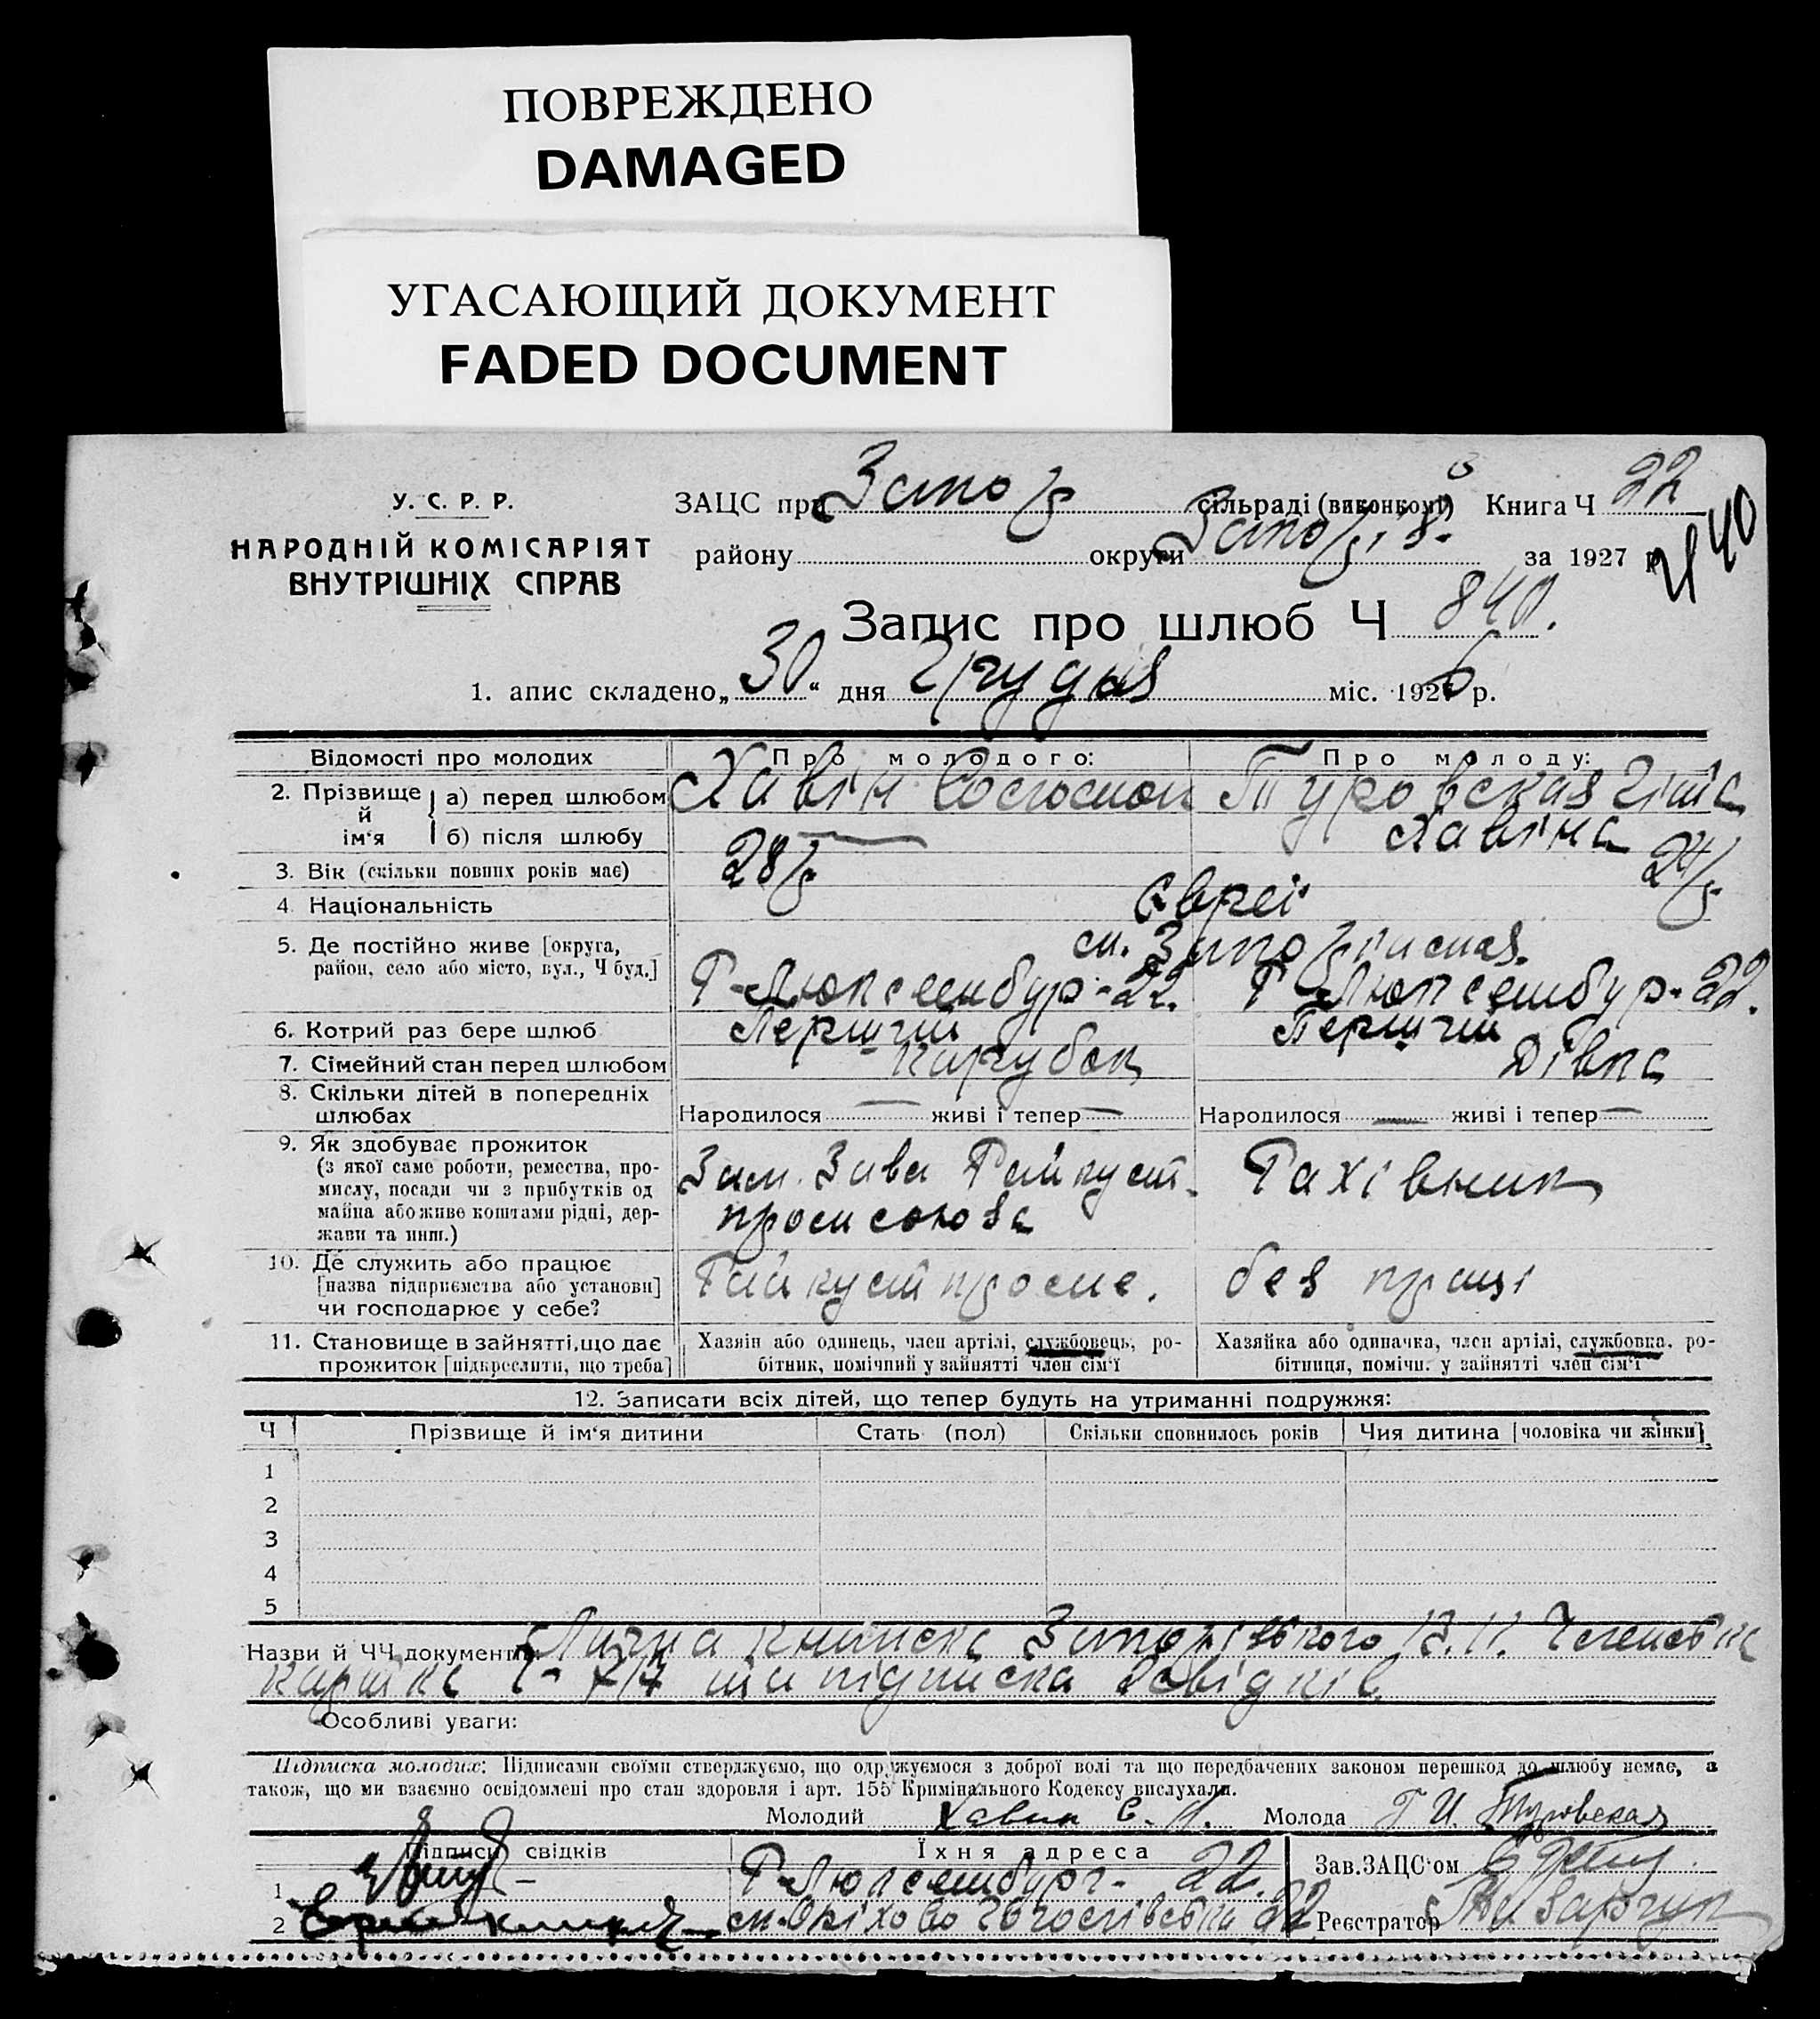 ПОВРЕЖДЕНО
DAMAGED
УГАСАЮЩИЙ ДОКУМЕНТ
FADED DOCUMENT
У. С. Р. Р.
НАРОДНІЙ КОМІСАРІЯТ
ВНУТРІШНІХ СПРАВ
ЗАЦС при сільраді (виконкомі) Книга Ч 22
району округи за 1927 р.
Ч 40
Запис про шлюб Ч 840.
1. апис складено „30“ дня Грудня міс. 1926 р.
Відомості про молодих
Про молодого:
Про молоду:
2. Прізвище й ім‘я
а) перед шлюбом
Хавін Соломон
Туровская Гіта
б) після шлюбу
—
Хавіна
3. Вік (скільки повних років має)
28 р.
24 р.
4. Національність
Євреї
5. Де постійно живе [округа,
район, село або місто, вул., Ч буд.]
м. Запоріжжя.
Р-Люксембур-22.
Р-Люксембур-22.
6. Котрий раз бере шлюб
Перший
Перший
7. Сімейний стан перед шлюбом
Парубок
Дівка
8. Скільки дітей в попередніх
шлюбах
Народилося — живі і тепер —
Народилося — живі і тепер —
9. Як здобуває прожиток
(з якої саме роботи, ремества, про-
мислу, посади чи з прибутків од
майна або живе коштами рідні, дер-
жави та инш.)
Зам. Зава Райкуст-
промсоюза
Рахівник
10. Де служить або працює
[назва підприємства або установи]
чи господарює у себе?
Райкустпромс.
без праці
11. Становище в зайнятті, що дає
прожиток [підкреслити, що треба]
Хазяін або одинець, член артілі, службовець, ро-
бітник, помічний у зайнятті член сім‘ї
Хазяйка або одиначка, член артілі, службовка, ро-
бітниця, помічн. у зайнятті член сім‘ї
12. Записати всіх дітей, що тепер будуть на утриманні подружжя:
Ч
Прізвище й ім‘я дитини
Стать (пол)
Скільки сповнилось років
Чия дитина [чоловіка чи жінки]
1
2
3
4
5
Назви й ЧЧ документів Лична книжка Запорізького Членська
картка та підписка свідків
Особливі уваги:
Підписка молодих: Підписами своїми стверджуємо, що одружуємося з доброї волі та що передбачених законом перешкод до шлюбу немає, а
також, що ми взаємно освідомлені про стан здоровля і арт. 155 Кримінального Кодексу вислухали.
Молодий Хавин С. Молода Г И. Туровская
Підписи свідків
Їхня адреса
Зав. ЗАЦС‘ом
1
Р-Люксембург- 22.
2
22
Реєстратор